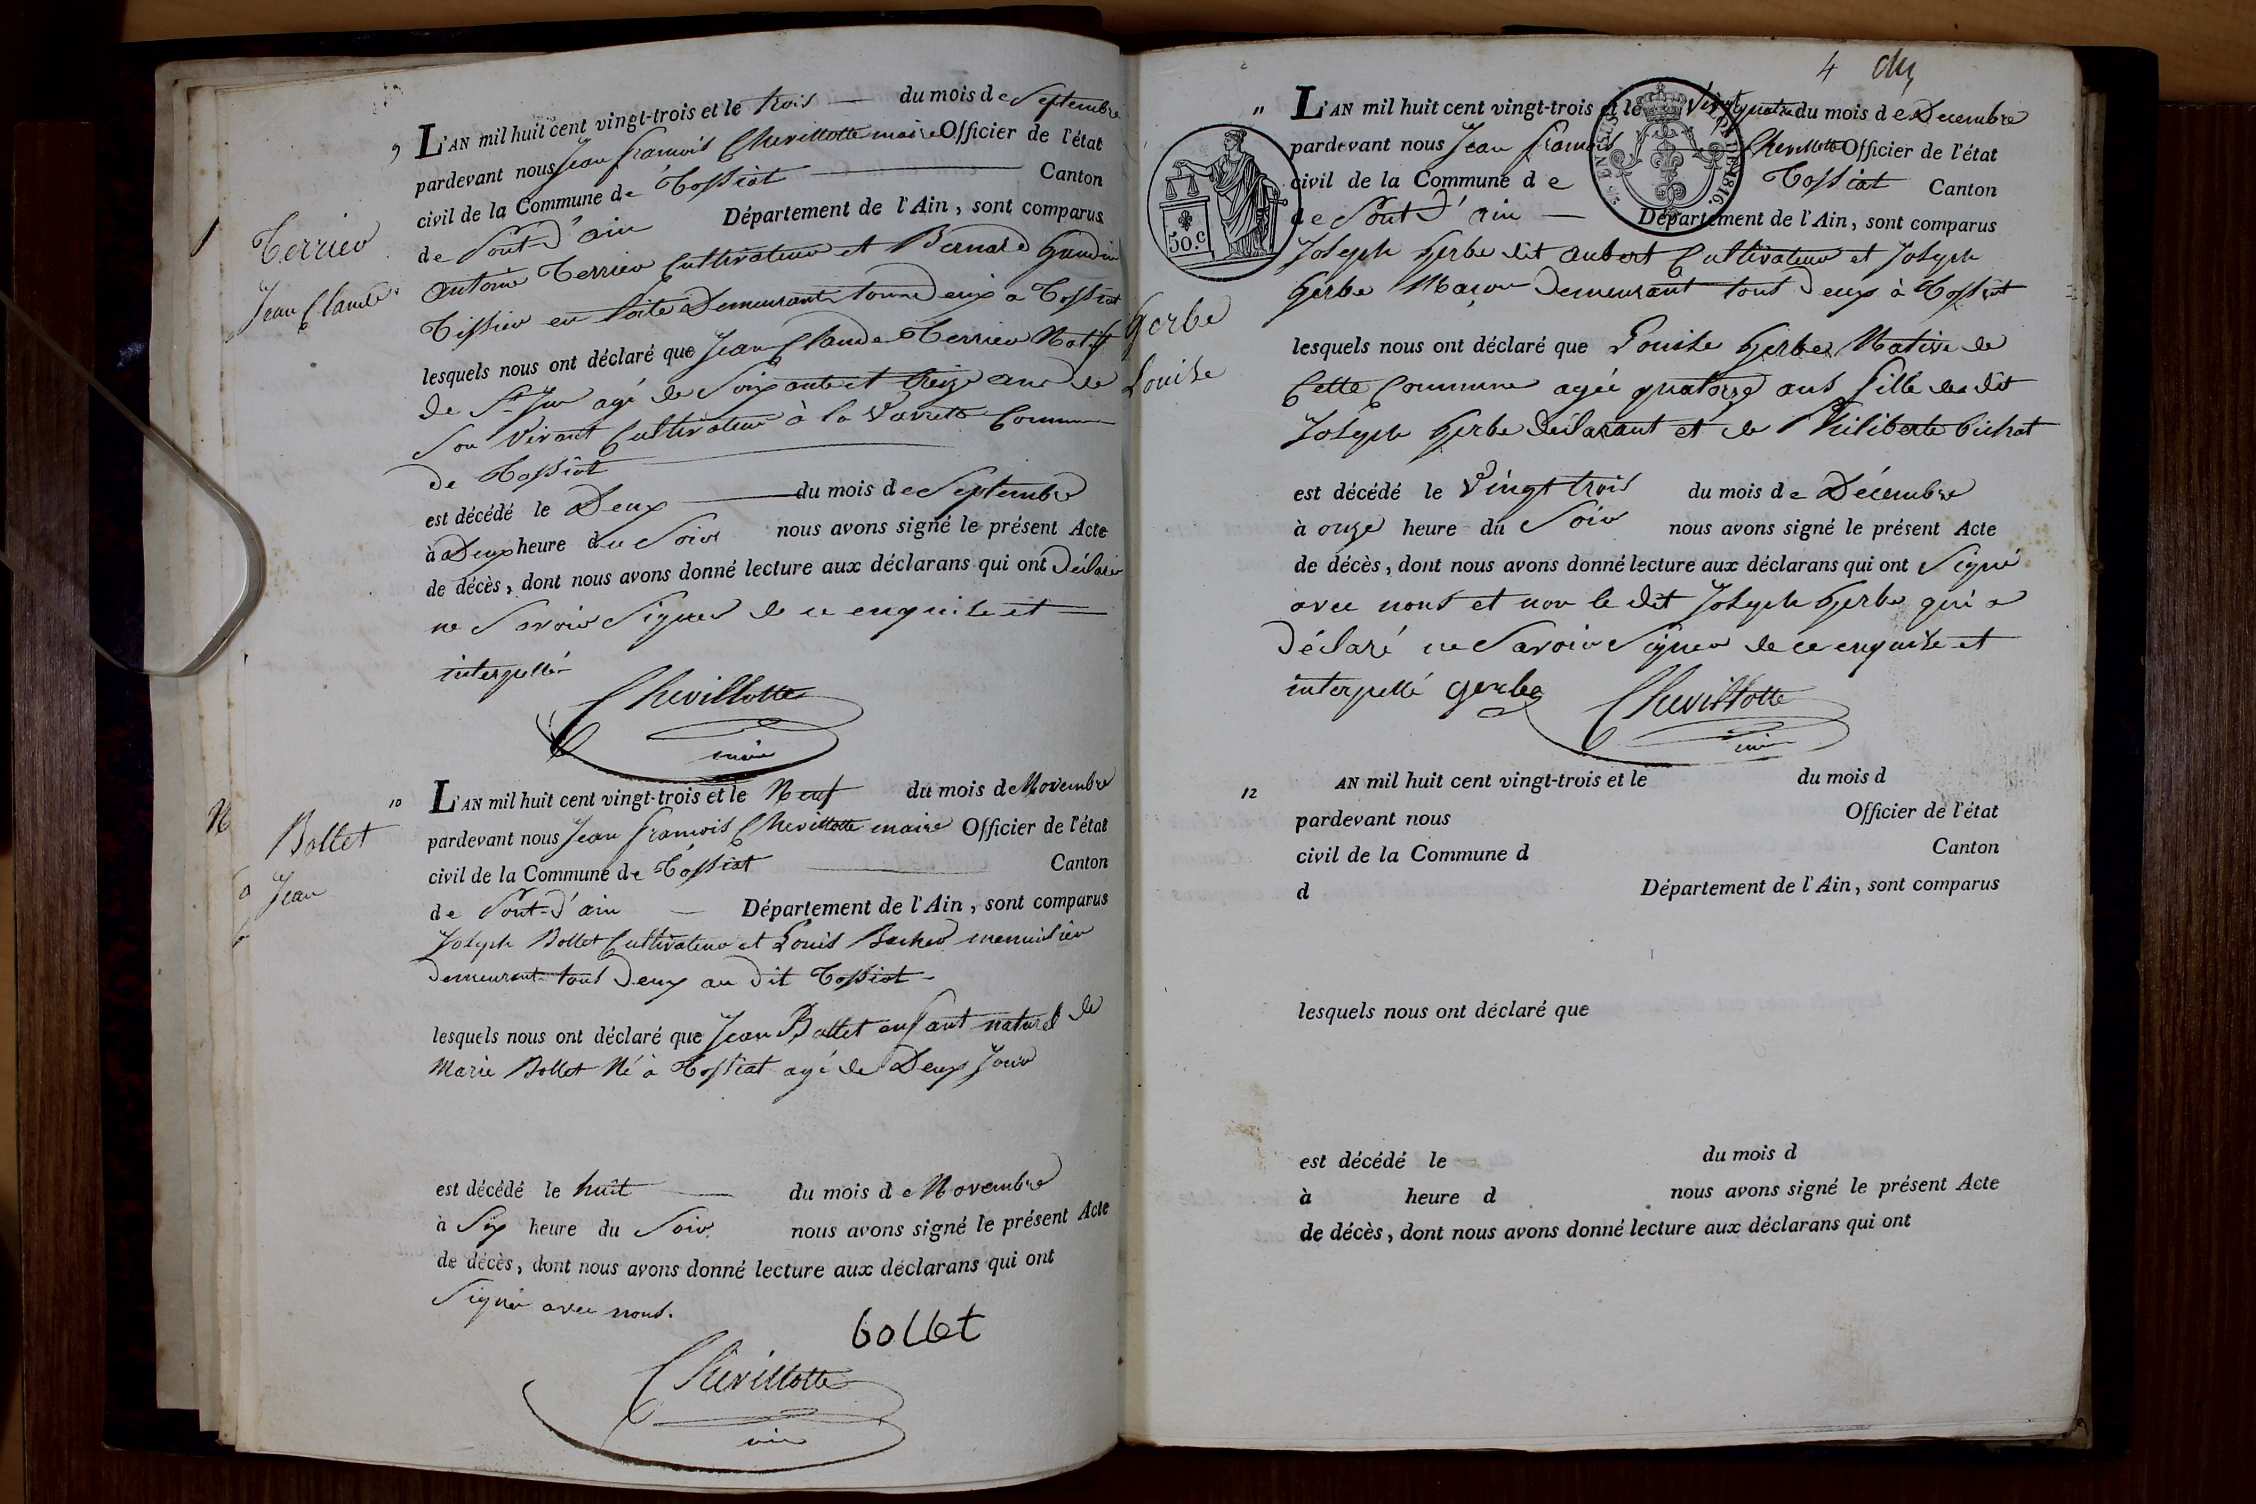 9
L'AN mil huit cent vingt-trois et le trois du mois de Septembre
pardevant nous Jean françois Chevillotte maire Officier de l'état
civil de la Commune de Tossiat Canton
de Pont-d'ain Département de l'Ain, sont comparus
antoine Terrier Cultivateur et Bernard
Tissier en toile Demeurant tous Deux a Tossiat
lesquels nous ont déclaré que Jean Claude Terrier Natif
de St agé de Soixante et treize ans de
Son Vivant Cultivateur à la Commune
de Tossiat
est décédé le Deux du mois de Septembre
à Deux heure du Soir nous avons signé le présent Acte
de décès, dont nous avons donné lecture aux déclarans qui ont Déclaré
ne Savoir Signer de ce enquise et
interpellé
Chevillotte
maire
Terrier
Jean Claude
10
L'AN mil huit cent vingt-trois et le Neuf du mois de Novembre
pardevant nous Jean françois Chevillotte maire Officier de l'état
civil de la Commune de Tossiat Canton
de Pont-d'ain Département de l'Ain, sont comparus
Joseph Bollet Cultivateur et Louis menuisier
demeurant tous Deux au dit Tossiat
lesquels nous ont déclaré que Jean Bollet enfant naturel de
Marie Bollet Né à Tossiat agé de Deux Jour
est décédé le huit du mois de Novembre
à Six heure du Soir nous avons signé le présent Acte
de décès, dont nous avons donné lecture aux déclarans qui ont
Signé avec nous.
bollet
Chevillotte
Bollet
Jean
4
11
L'AN mil huit cent vingt-trois et le Vingt quatre du mois de Decembre
pardevant nous Jean françois Chevillotte Officier de l'état
civil de la Commune de Tossiat Canton
de Pont d'ain Département de l'Ain, sont comparus
Joseph Gerbe dit aubert Cultivateur et Joseph
Gerbe Maçon Demeurant tous Deux à Tossiat
lesquels nous ont déclaré que Louise Gerbe Native de
Cette Commune agée quatorze ans fille de dit
Joseph Gerbe déclarant et de Philiberte bichat
est décédé le Vingt trois du mois de Décembre
à onze heure du Soir nous avons signé le présent Acte
de décès, dont nous avons donné lecture aux déclarans qui ont Signé
avec nous et non le dit Joseph Gerbe qui a
Déclaré ne Savoir Signer de ce enquise et
interpellé gerbe Chevillotte
50.C
Gerbe
Louise
12
AN mil huit cent vingt-trois et le du mois d
pardevant nous Officier de l'état
civil de la Commune d Canton
d Département de l'Ain, sont comparus
lesquels nous ont déclaré que
est décédé le du mois d
à heure d nous avons signé le présent Acte
de décès, dont nous avons donné lecture aux déclarans qui ont